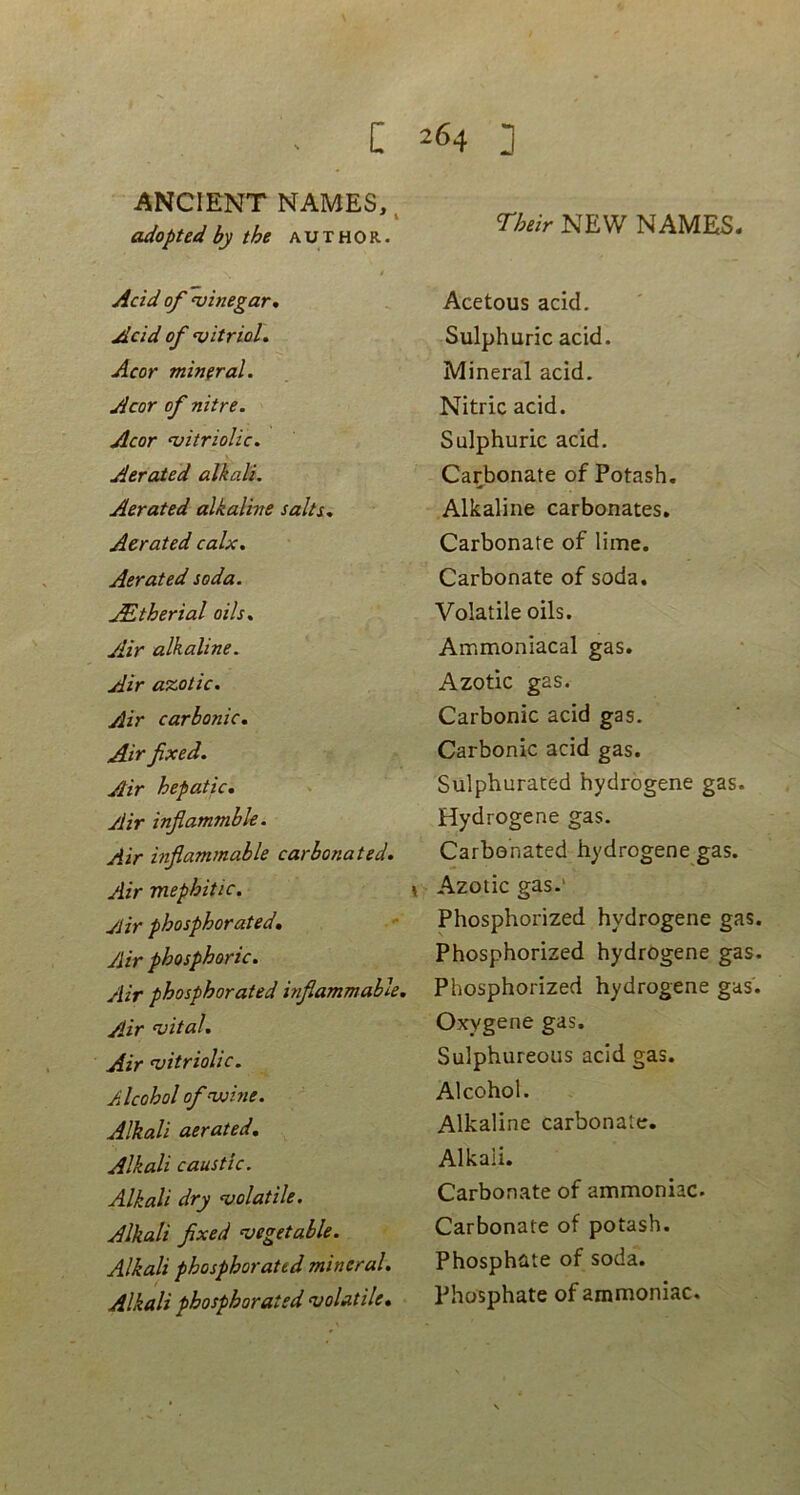 [ 264 ]
ANCIENT NAMES,
adopted by the AUTHOR.
Their NEW NAMES.
Acid of vinegar. Acetous acid.
Acid of vitriol. Sulphuric acid.
Acor mineral. Mineral acid.
Acor of nitre. Nitric acid.
Acor vitriolic. Sulphuric acid.
Aerated alkali. Carbonate of Potash.
Aerated alkaline salts. Alkaline carbonates.
Aerated calx. Carbonate of lime.
Aerated soda. Carbonate of soda.
Ætherial oils. Volatile oils.
Air alkaline. Ammoniacal gas.
Air azotic. Azotic gas.
Air carbonic. Carbonic acid gas.
Air fixed. Carbonic acid gas.
Air hepatic. Sulphurated hydrogene gas.
Air inflammble. Hydrogene gas.
Air inflammable carbonated. Carbonated hydrogene gas.
Air mephitic. Azotic gas.
Air phosphorated. Phosphorized hydrogene gas.
Air phosphoric. Phosphorized hydrogene gas.
Air phosphorated inflammable. Phosphorized hydrogene gas.
Air vital. Oxygene gas.
Air vitriolic. Sulphureous acid gas.
Alcohol of wine. Alcohol.
Alkali aerated. Alkaline carbonate.
Alkali caustic. Alkali.
Alkali dry volatile. Carbonate of ammoniac.
Alkali fixed vegetable. Carbonate of potash.
Alkali phosphorated mineral. Phosphate of soda.
Alkali phosphorated volatile. Phosphate of ammoniac.